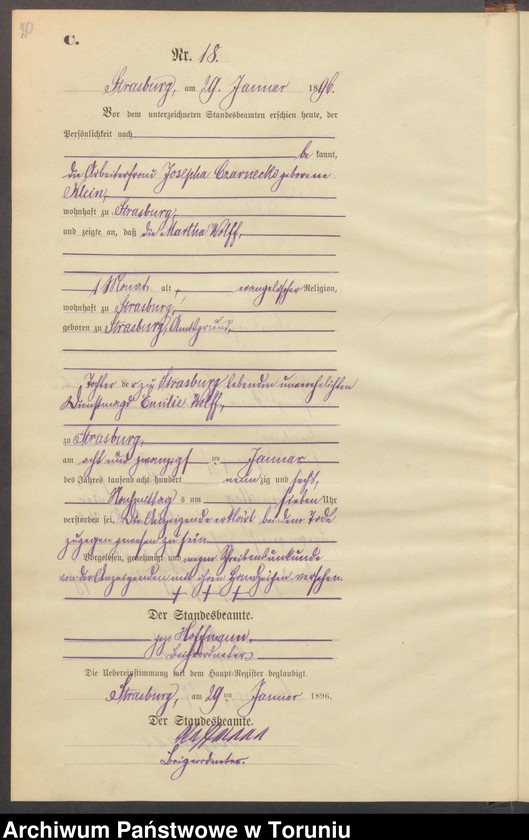 20
C.
Nr. 18.
Strasburg, am 29. Januar 1896.
Vor dem unterzeichneten Standesbeamten erschien heute, der
Persönlichkeit nach
be kannt,
die Arbeiterfrau Josepha Czarnecka geborene
Klein,
wohnhaft zu Strasburg,
und zeigte an, daß die Martha Wolff,
1 Monat alt, evangelischer Religion,
wohnhaft zu Strasburg,
geboren zu Strasburg, Amtsgrund,
Tochter der zu Strasburg lebenden unverehelichten
Dienstmagd Emilie Wolff,
zu Strasburg,
am acht und zwanzigsten Januar
des Jahres tausend acht hundert neun zig und sechs,
Nachmittag s um sieben Uhr
verstorben sei. Die Anzeigende erklärt bei dem Tode
zugegen gewesen zu sein.
Vorgelesen, genehmigt und wegen Schreibensunkunde
von der Anzeigenden mit ihrem Handzeichen versehen.
+ + +
Der Standesbeamte.
gez. Hoffmann.
Beigeordneter.
Die Uebereinstimmung mit dem Haupt-Register beglaubigt.
Strasburg, am 29ten Januar 1896.
Der Standesbeamte.
Beigeordneter.
Archiwum Państwowe w Toruniu